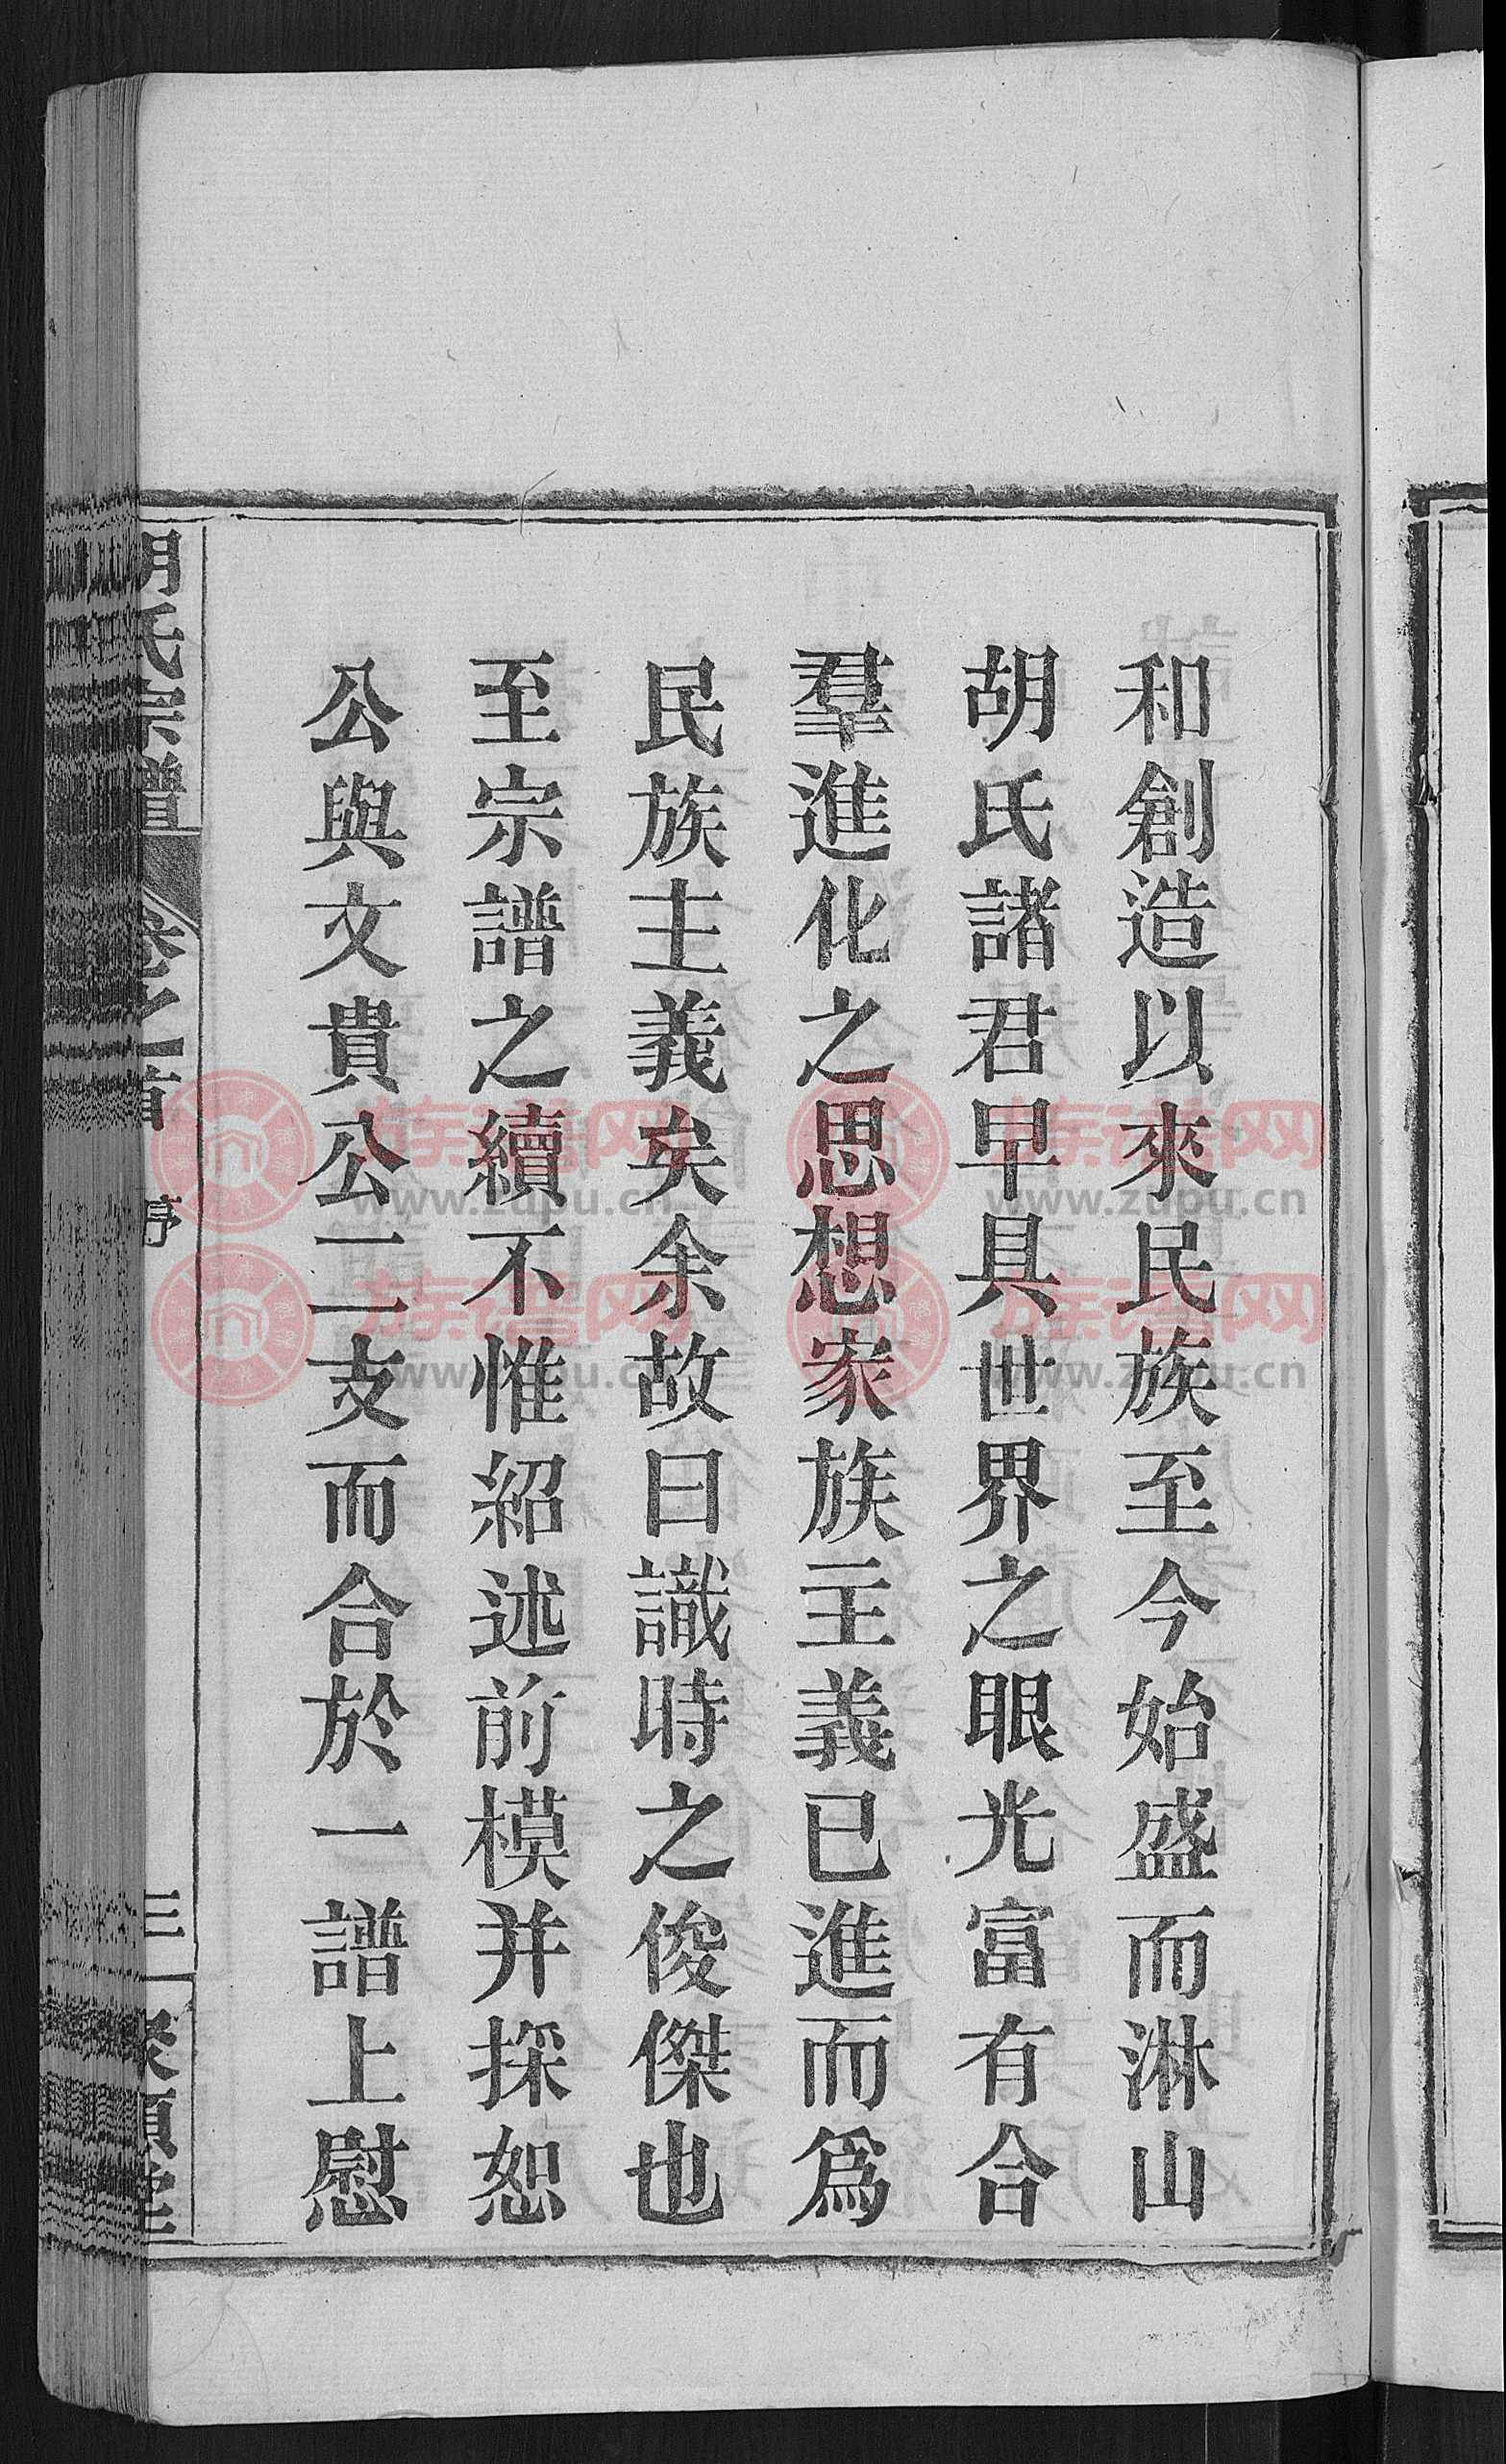 和創造以來民族至今始盛而淋山
胡氏諸君早具世界之眼光富有合
羣進化之思想家族主義已進而爲
民族主義矣余故曰識時之俊傑也
至宗譜之續不惟紹述前模并採恕
公與文貴公二支而合於一譜上慰
胡氏宗譜
卷之首
序
三
族谱网
www.zupu.cn
族谱网
www.zupu.cn
族谱网
www.zupu.cn
族谱网
www.zupu.cn